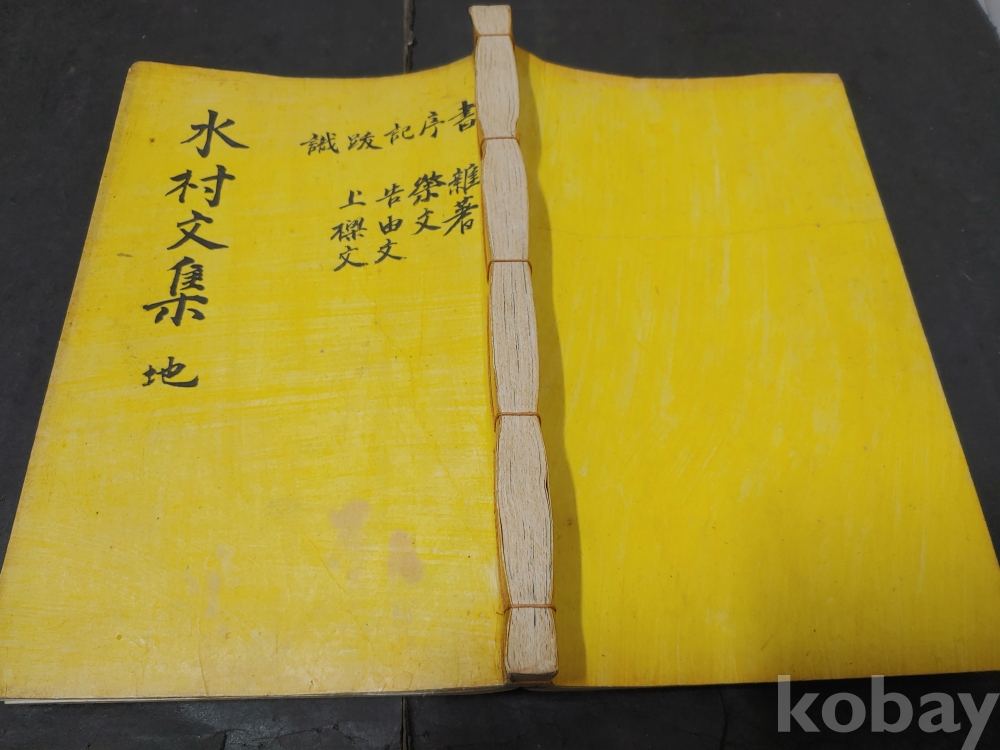 書 雜著
序 祭文
記 告由文
跋 上樑文
識
水村文集 地
kobay